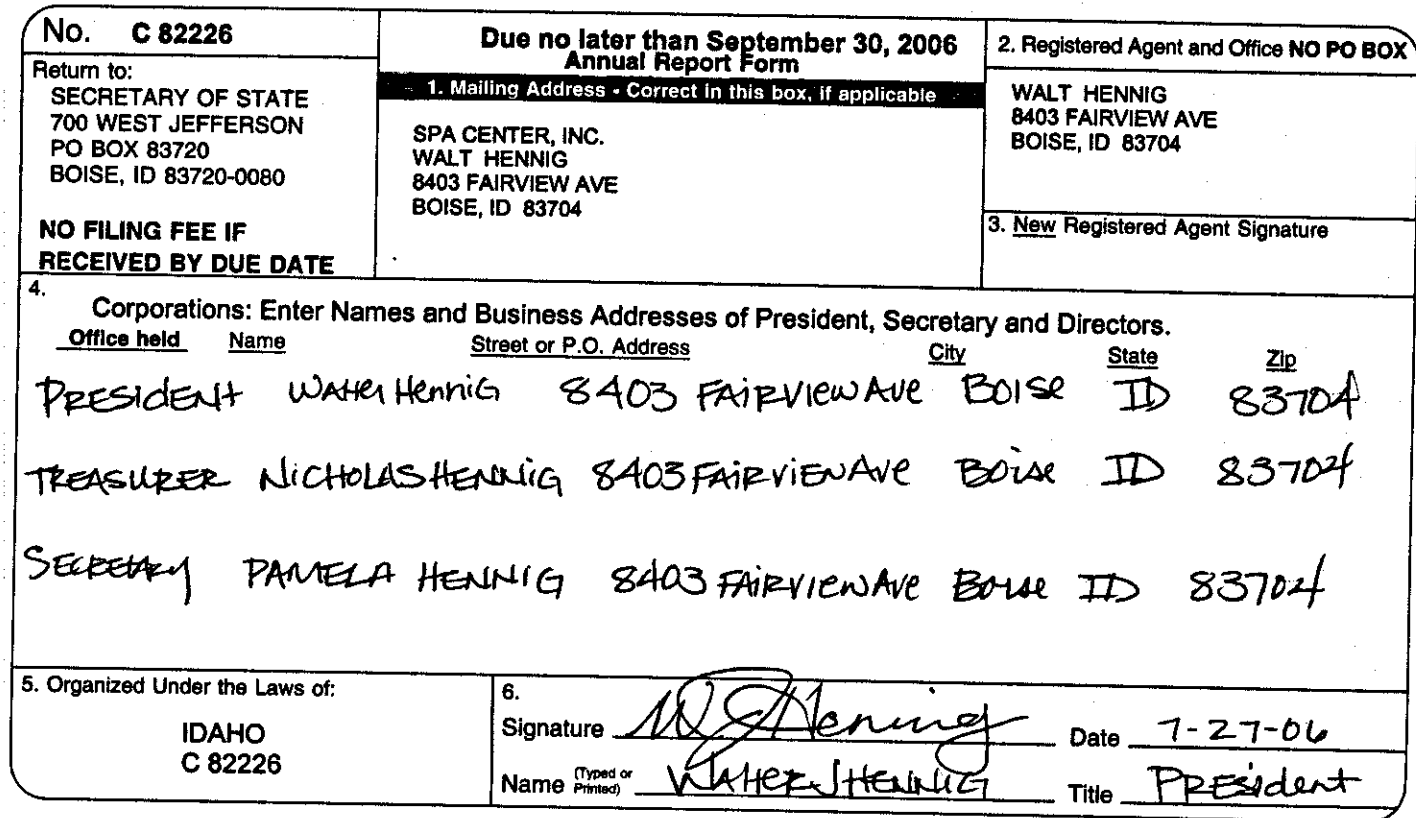 No. C 82226
Return to:
SECRETARY OF STATE
700 WEST JEFFERSON
PO BOX 83720
BOISE, ID 83720-0080
NO FILING FEE IF
RECEIVED BY DUE DATE
Due no later than September 30, 2006
Annual Report Form
1. Mailing Address - Correct in this box, if applicable
SPA CENTER, INC.
WALT HENNIG
8403 FAIRVIEW AVE
BOISE, ID 83704
2. Registered Agent and Office NO PO BOX
WALT HENNIG
8403 FAIRVIEW AVE
BOISE, ID 83704
3. New Registered Agent Signature
4.
Corporations: Enter Names and Business Addresses of President, Secretary and Directors.
Office held Name Street or P.O. Address City State Zip
PRESIDENT Walter HenniG 8403 FAIRVIEW AVE BOISE ID 83704
TREASURER NICHOLAS HENNIG 8403 FAIRVIEW AVE Boise ID 83704
SECRETARY PAMELA HENNIG 8403 FAIRVIEW AVE Boise ID 83704
5. Organized Under the Laws of:
IDAHO
C 82226
6.
Signature WJ Hennig Date 7-27-06
Name (Typed or Printed) WALTER J HENNIG Title PRESident